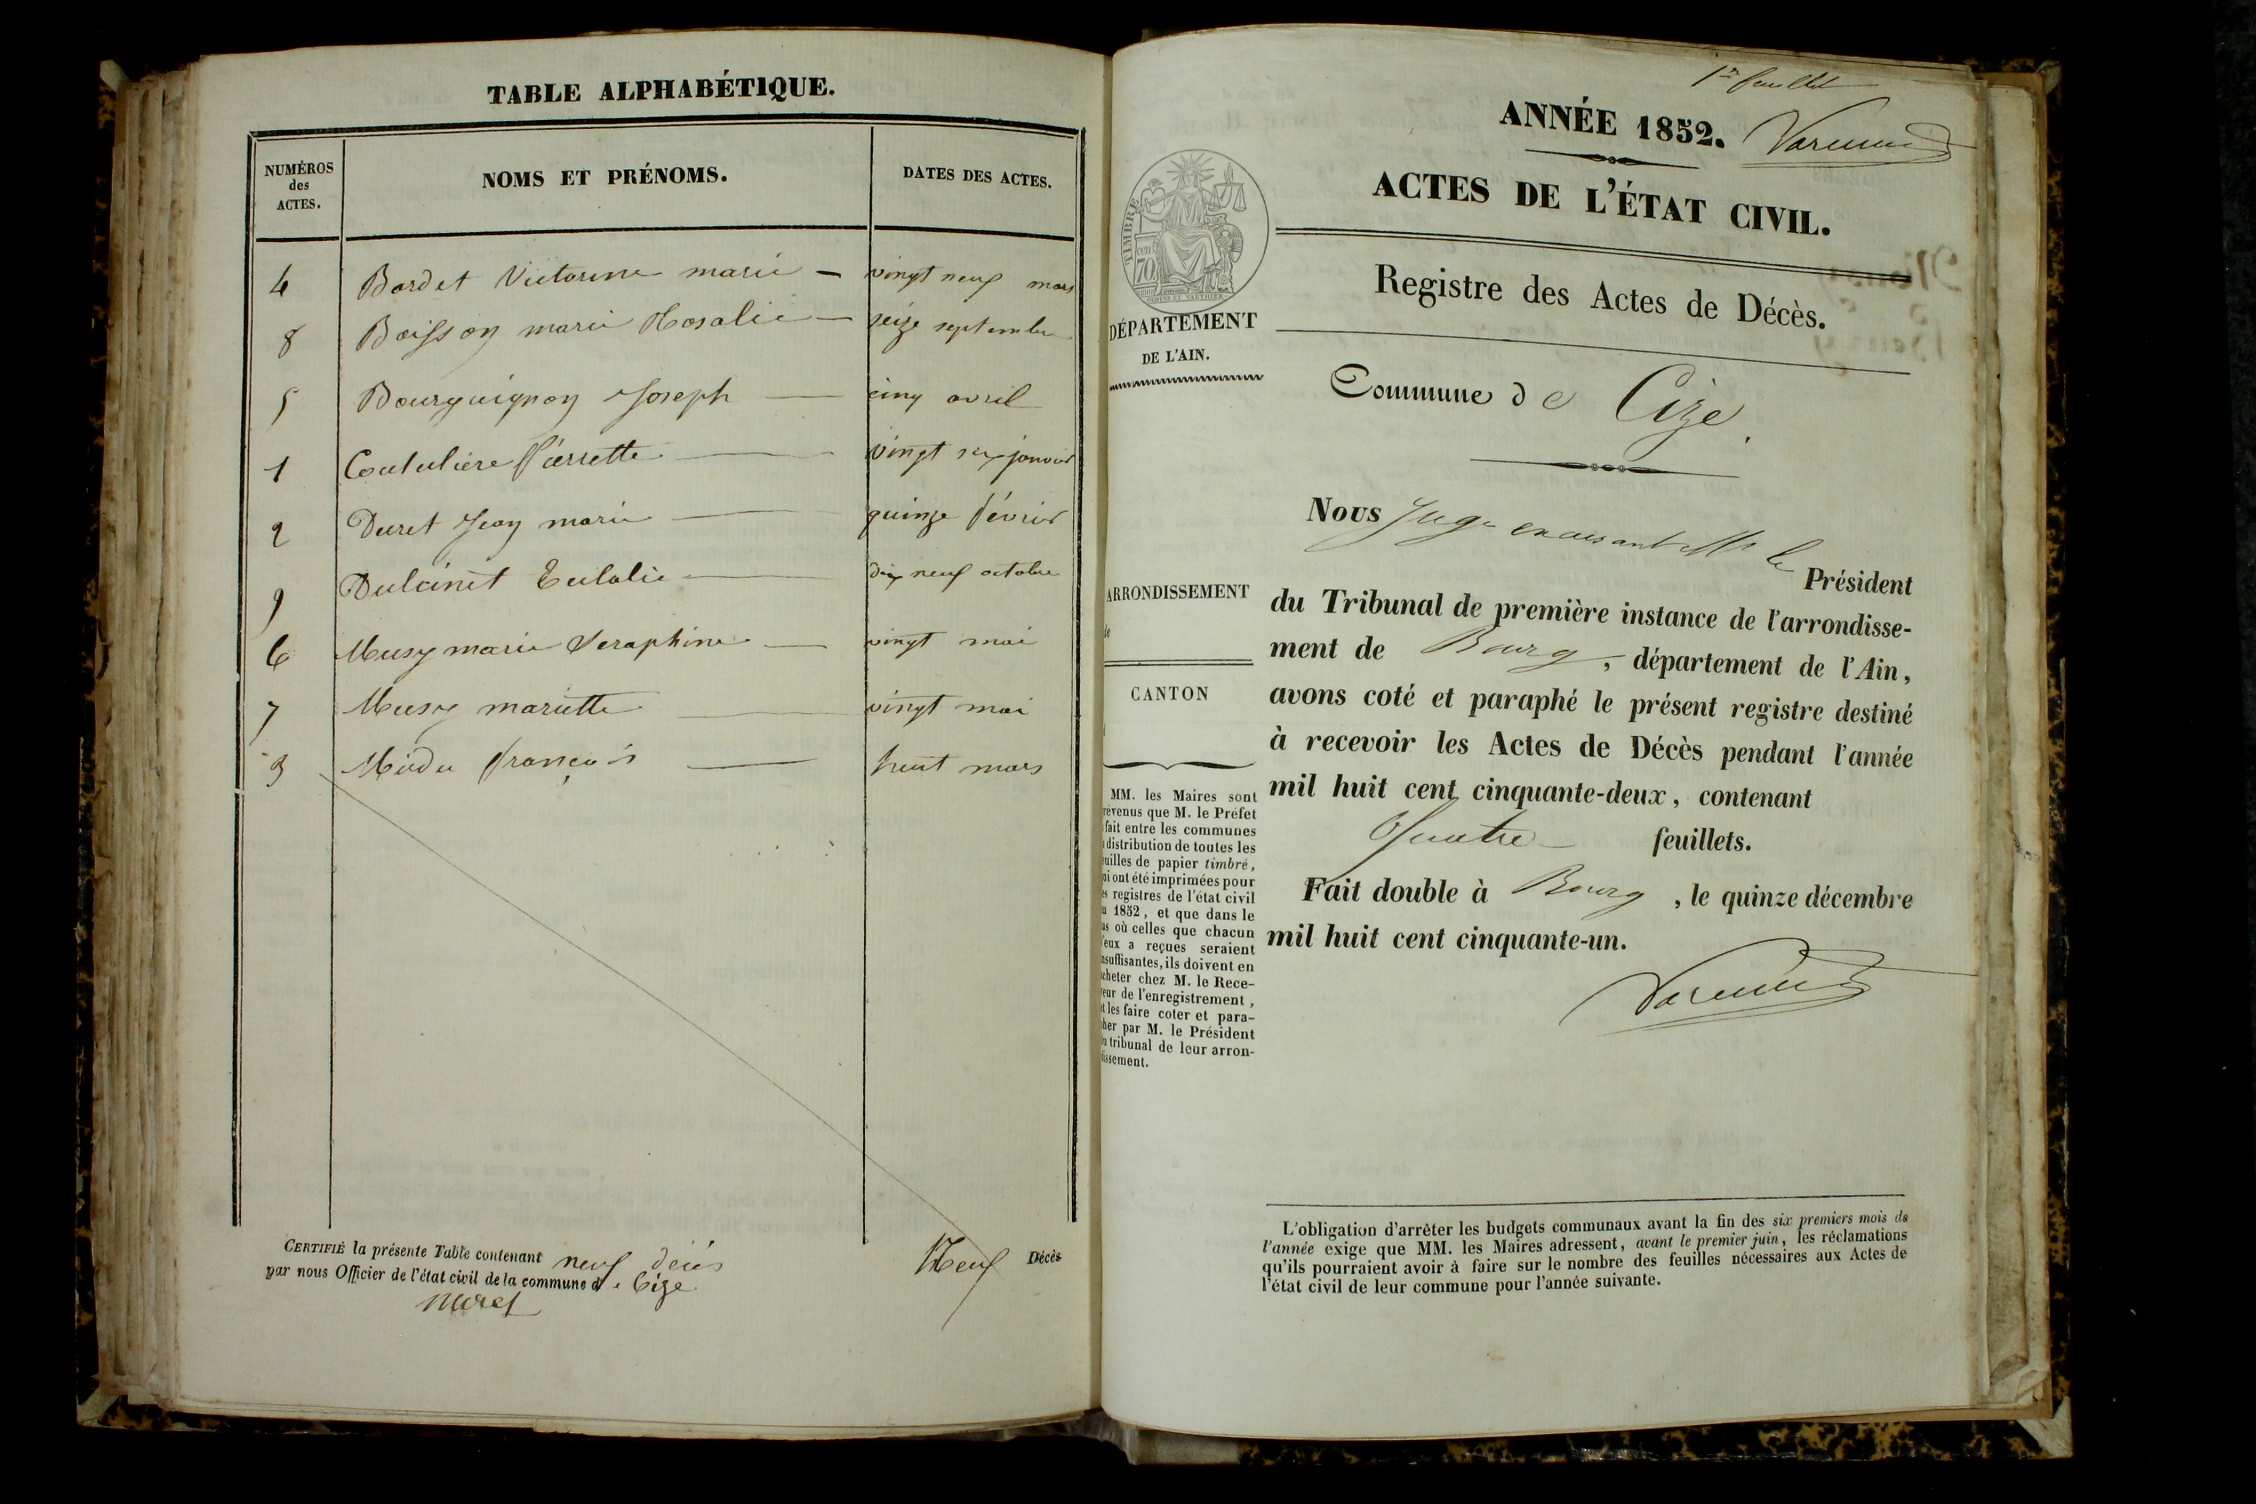 TABLE ALPHABÉTIQUE.
NUMÉROS
des
ACTES.
NOMS ET PRÉNOMS.
DATES DES ACTES.
4 Bordet Victorine marie - vingt neuf mars
8 Boisson marie Rosalie - seize septembre
5 Bourguignon Joseph - cinq avril
1 Pierrette - vingt six janvier
2 Duret Jean marie - quinze février
9 Dulcinet Eulalie - dix neuf octobre
6 Musy marie Seraphine - vingt mai
7 Musy mariette - vingt mai
3 françois - huit mars
CERTIFIÉ la présente Table contenant neuf décès
Neuf Décès
par nous Officier de l'état civil de la commune de Cize
1er feuillet
ANNÉE 1852.
ACTES DE L'ÉTAT CIVIL.
TIMBRE
70
Registre des Actes de Décès.
DÉPARTEMENT
DE L'AIN.
Commune de Cize
Nous Juge en le
Président
du Tribunal de première instance de l'arrondisse-
ment de Bourg, département de l'Ain,
avons coté et paraphé le présent registre destiné
à recevoir les Actes de Décès pendant l'année
mil huit cent cinquante-deux, contenant
Quatre feuillets.
Fait double à Bourg, le quinze décembre
mil huit cent cinquante-un.
ARRONDISSEMENT
CANTON
MM. les Maires sont
révenus que M. le Préfet
fait entre les communes
distribution de toutes les
uilles de papier timbré,
ui ont été imprimées pour
es registres de l'état civil
u 1852, et que dans le
as où celles que chacun
'eux a reçues seraient
nsuffisantes, ils doivent en
cheter chez M. le Rece-
eur de l'enregistrement,
t les faire coter et para-
her par M. le Président
u tribunal de leur arron-
issement.
L'obligation d'arrêter les budgets communaux avant la fin des six premiers mois de
l'année exige que MM. les Maires adressent, avant le premier juin, les réclamations
qu'ils pourraient avoir à faire sur le nombre des feuilles nécessaires aux Actes de
l'état civil de leur commune pour l'année suivante.